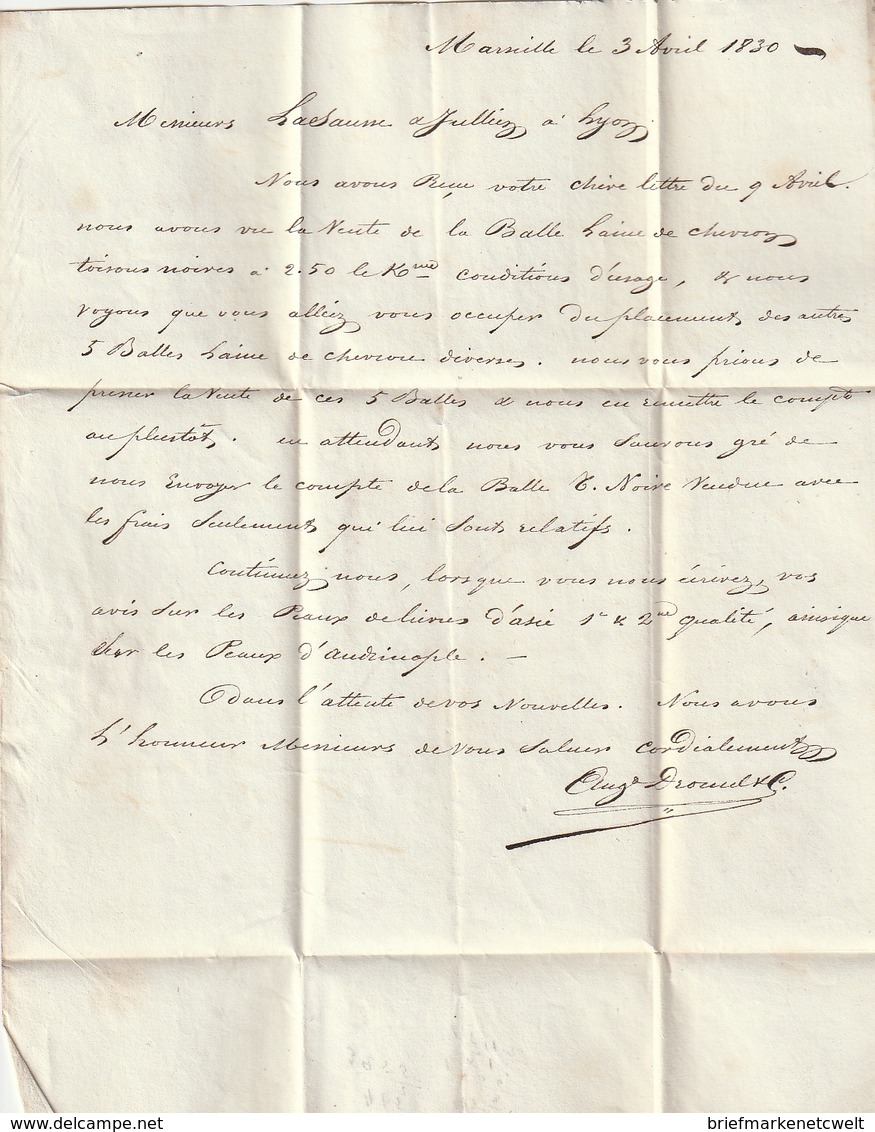 Marseille le 3 Avril 1830
Messieurs LaSausse & Jullien à Lyon
Nous avons Reçu votre chère lettre du 9 Avril.
nous avons vu la Vente de la Balle Laine de chevron
toisons noires à 2.50 le K.me conditions d'usage, & nous
voyons que vous alliéz vous occuper du placement des autres
5 Balles Laine de chevron diverses. nous vous prions de
presser la Vente de ces 5 Balles & nous en remettre le compte
au plustôt. en attendant nous vous saurons gré de
nous Envoyer le compte de la Balle T. Noire Vendue avec
les frais Seulement qui lui Sont relatifs.
Continuez nous, lorsque vous nous écrivez, vos
avis sur les Peaux de lièvres d'asie 1e & 2me qualité, ainsi que
Sur les Peaux d'andrinople. —
dans l'attente de vos Nouvelles. Nous avons
L'honneur Messieurs de Vous Saluer cordialement
Aug.e & C.
briefmarkenetcwelt